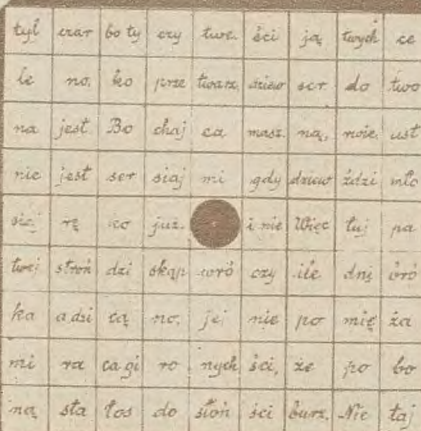 tył czar bo ty czy twe. ści ją twych ce
le no. ko prze twarz. dziew ser do two
na jest Bo chaj ca masz. ną, noże. ust
nie jest ser siaj mi gdy dziew ździ mło
siej rę co już. i nie Więc tuj pa
twej stroń dzi skąp wró czy ile dni bró
ka a dzi cą no. jej nie po mię ża
mi ra ca gi ro nych ści, że po bo
ną sta łos do słoń ści burz. Nie taj